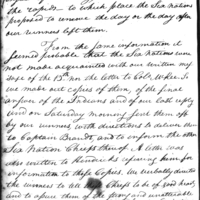 the rapids — to which place the Sea nations
proposed to remove the day or the day after
our runners left them.
From the same information it
seemed probable that the Sea nations were
not made acquainted with our written mes
sage of the 13th nor the letter to Colo. McKee. So
we made out copies of them, of the final
answer of the Indians and of our last reply
and on Saturday morning sent them off
by our runners with directions to deliver them
to Captain Brandt, and to inform the other
Sea Nation Chiefs thereof. A letter was
also written to Hendricks refering him for
information to these Copies. We verbally desired
the runners to tell the Chiefs to be of good heart,
and to assure them of the strong and unalterable